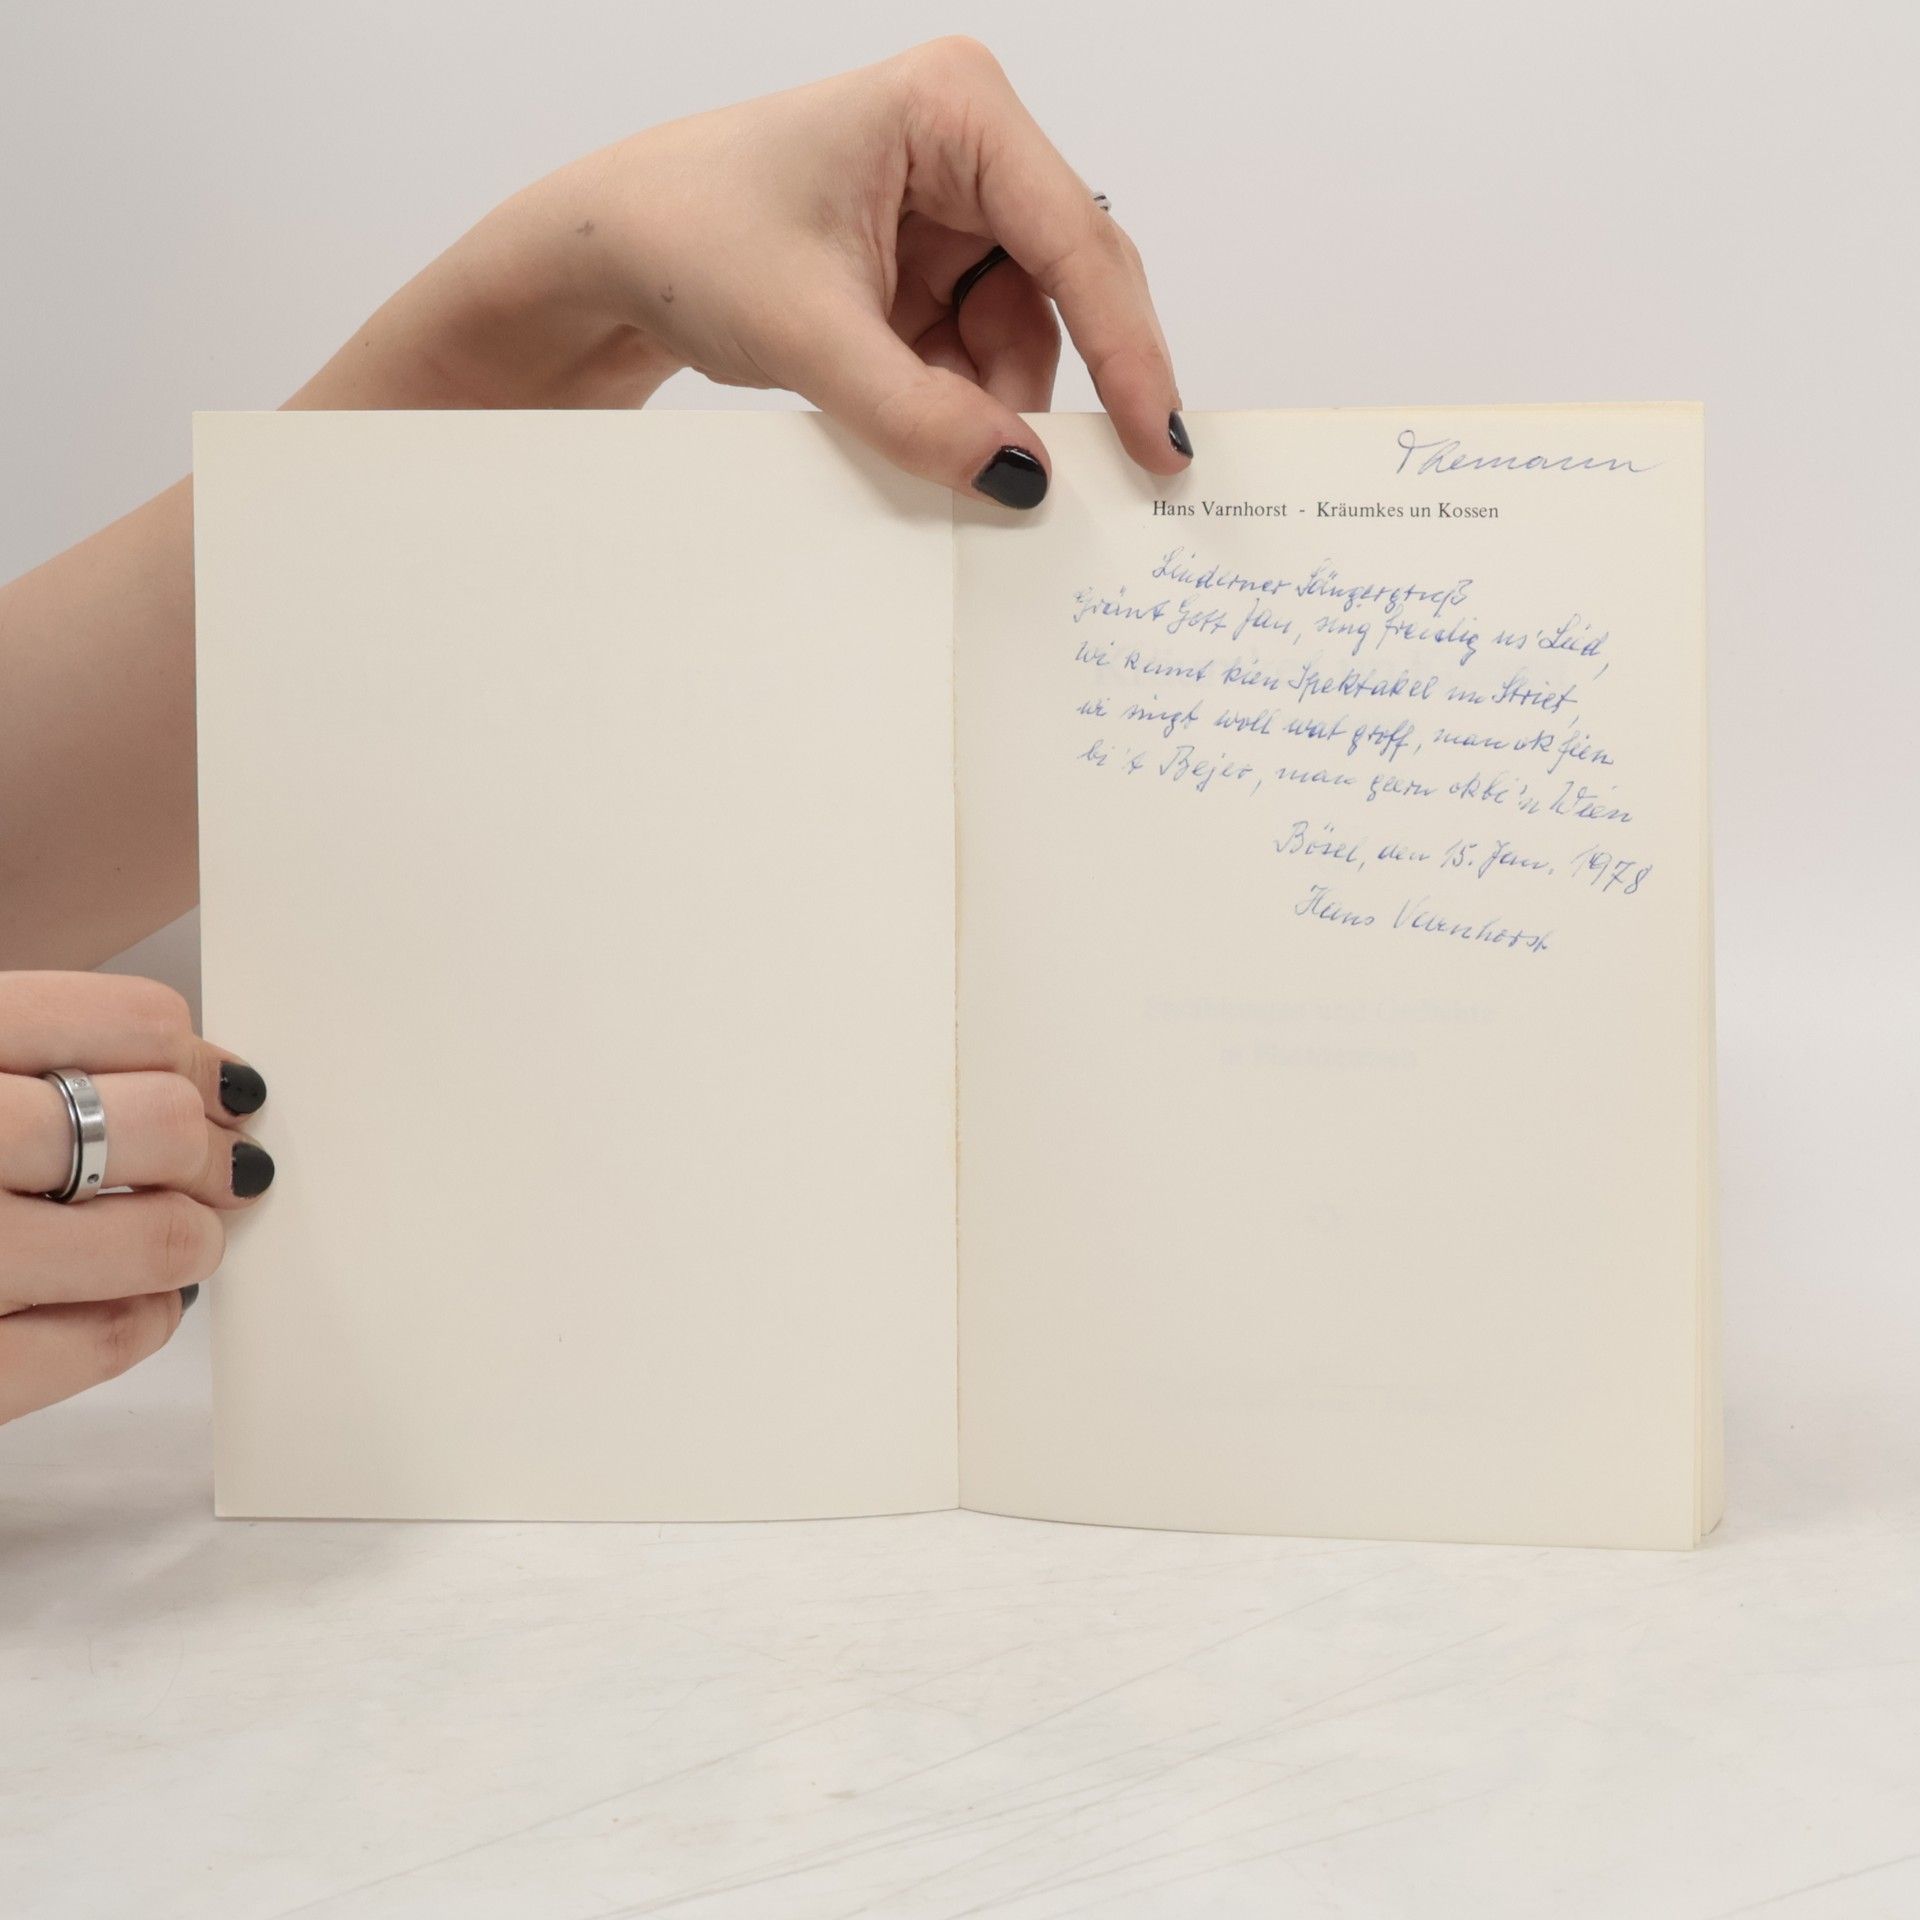 Themann
Hans Varnhorst - Kräumkes un Kossen
Linderner Sängergruß
Gott Jan, sing freidig us' Lied,
wi kennt kien Spektakel un Striet,
wi singt woll wat groff, man ok fien
bi't Bejer, man geern ok bi'n Wien
Bösel, den 15. Jan. 1978
Hans Varnhorst